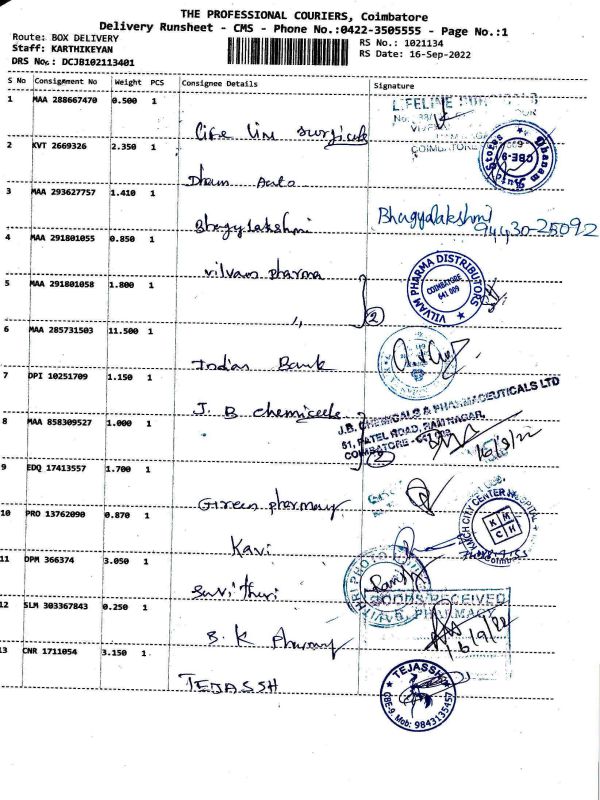 THE PROFESSIONAL COURIERS, Coimbatore
Delivery Runsheet - CMS - Phone No.:0422-3505555 - Page No.:1
Route: BOX DELIVERY
Staff: KARTHIKEYAN
DRS No.: DCJB102113401
RS No.: 1021134
RS Date: 16-Sep-2022
S No Consignment No Weight PCS Consignee Details Signature
1 MAA 288667470 0.500 1
Life line surgicals
LIFELINE
COIMBATORE
2 KVT 2669326 2.350 1
Dhanam Stores CBE-9
3 MAA 293627757 1.410 1
Bhagyalakshmi
Bhagyalakshmi
94430-25092
4 MAA 291801055 0.850 1
vilvam pharma
VILVAM PHARMA DISTRIBUTORS
COIMBATORE
641 009
5 MAA 291801058 1.800 1
〃 2
6 MAA 285731503 11.500 1
Indian Bank
7 DPI 10251709 1.150 1
J. B chemicals
J.B. CHEMICALS & PHARMACEUTICALS LTD
51, PATEL ROAD, RAM NAGAR,
COIMBATORE
8 MAA 858309527 1.000 1
2
16/9/22
9 EDQ 17413557 1.700 1
Green pharmacy
10 PRO 13762090 0.870 1
Kavi
KMCH CITY CENTER HOSPITAL
KMCH
11 DPM 366374 3.050 1
Savithri
PHOTO
12 SLM 303367843 0.250 1
B. K Pharmacy
GOODS RECEIVED
PHARMACY
16/9/22
13 CNR 1711054 3.150 1
TEJASSH
TEJASSH
CBE-9. Mob: 9843135457